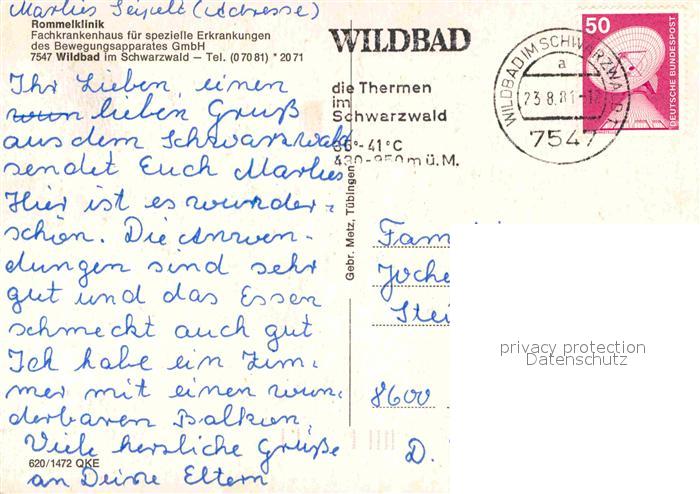 Marlies Seipelt (Adresse)
Rommelklinik
Fachkrankenhaus für spezielle Erkrankungen
des Bewegungsapparates GmbH
7547 Wildbad im Schwarzwald – Tel. (07081) *2071
Ihr Lieben, einen
lieben Gruß
aus dem Schwarzwald
sendet Euch Marlies
Hier ist es wunder-
schön. Die Anwen-
dungen sind sehr
gut und das Essen
schmeckt auch gut
Ich habe ein Zim-
mer mit einen wun-
derbaren Balkon.
Viele herzliche Grüße
an Deine Eltern
620/1472 QKE
WILDBAD
die Thermen
im
Schwarzwald
36°-41°C
430-950m ü.M.
WILDBAD IM SCHWARZWALD 1
a
23.8.81-12
7547
50
DEUTSCHE BUNDESPOST
Gebr. Metz, Tübingen
Fam
Joche
Stei
8600
D.
privacy protection
Datenschutz